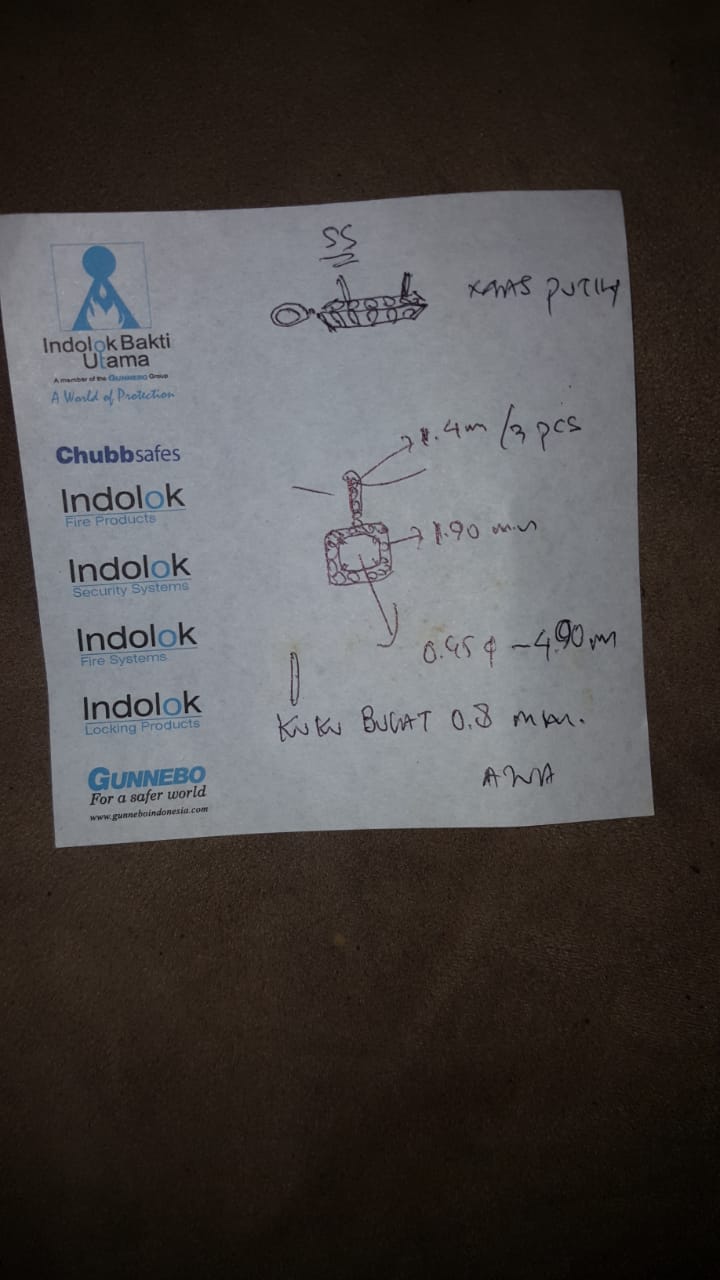 Indolok Bakti
Utama
A member of the GUNNEBO Group
A World of Protection
Chubbsafes
Indolok
Fire Products
Indolok
Security Systems
Indolok
Fire Systems
Indolok
Locking Products
GUNNEBO
For a safer world
www.gunneboindonesia.com
SS
PUTIH
1.4m / 3 pcs
1.90 mm
0.45 φ - 4.90 m
KUKU BULAT 0.8 mm.